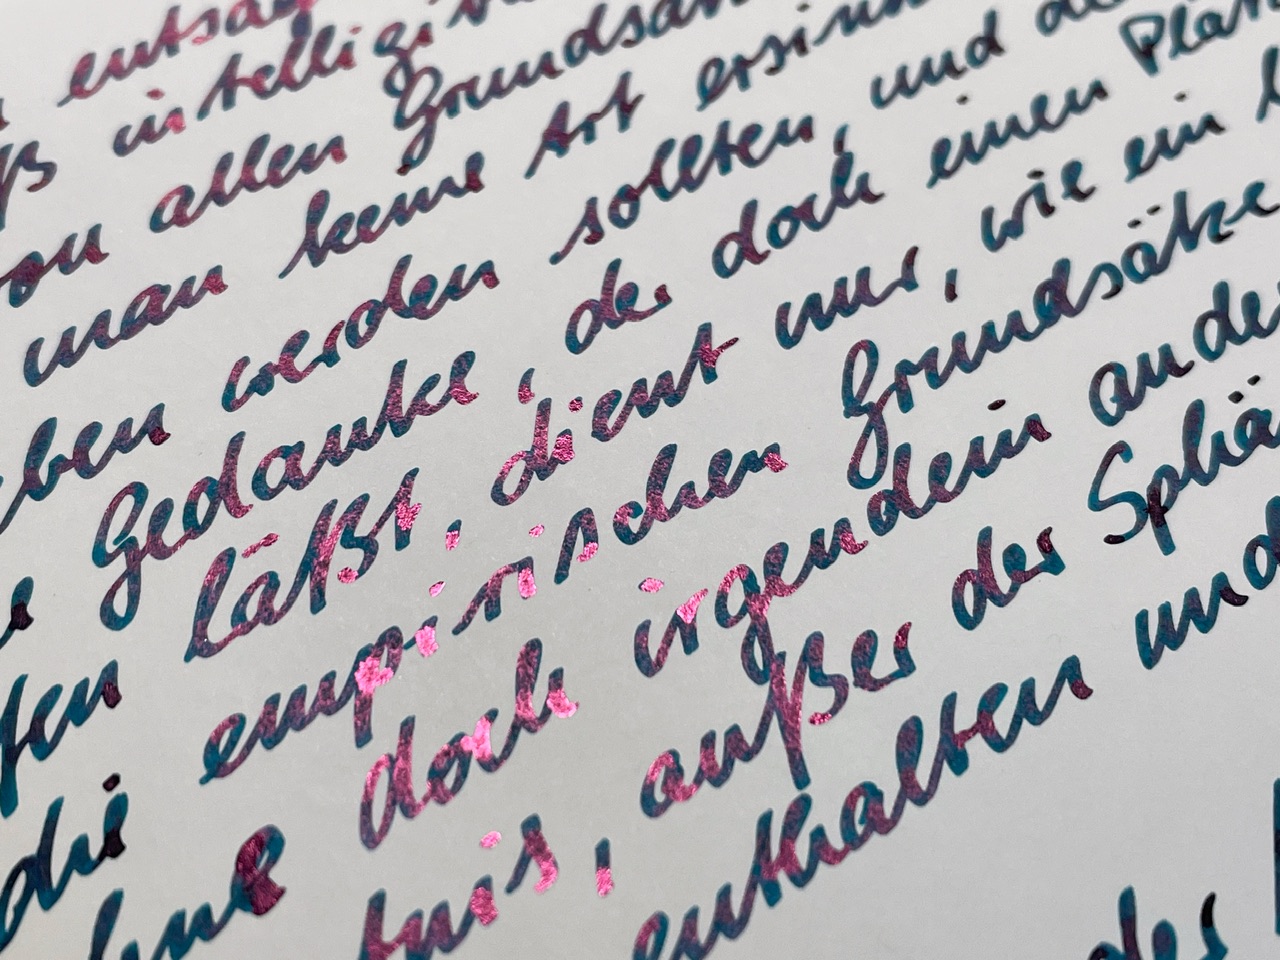 entsag
ß intelligi
von allen Grundsä
man keine Art ersinn
eben werden sollten, und de
Gedanke, der doch einen Plat
fen läßt, dient nur, wie ein l
die empirischen Grundsätze
hne doch irgendein ander
tnis, außer der Sphä
enthalten und
des